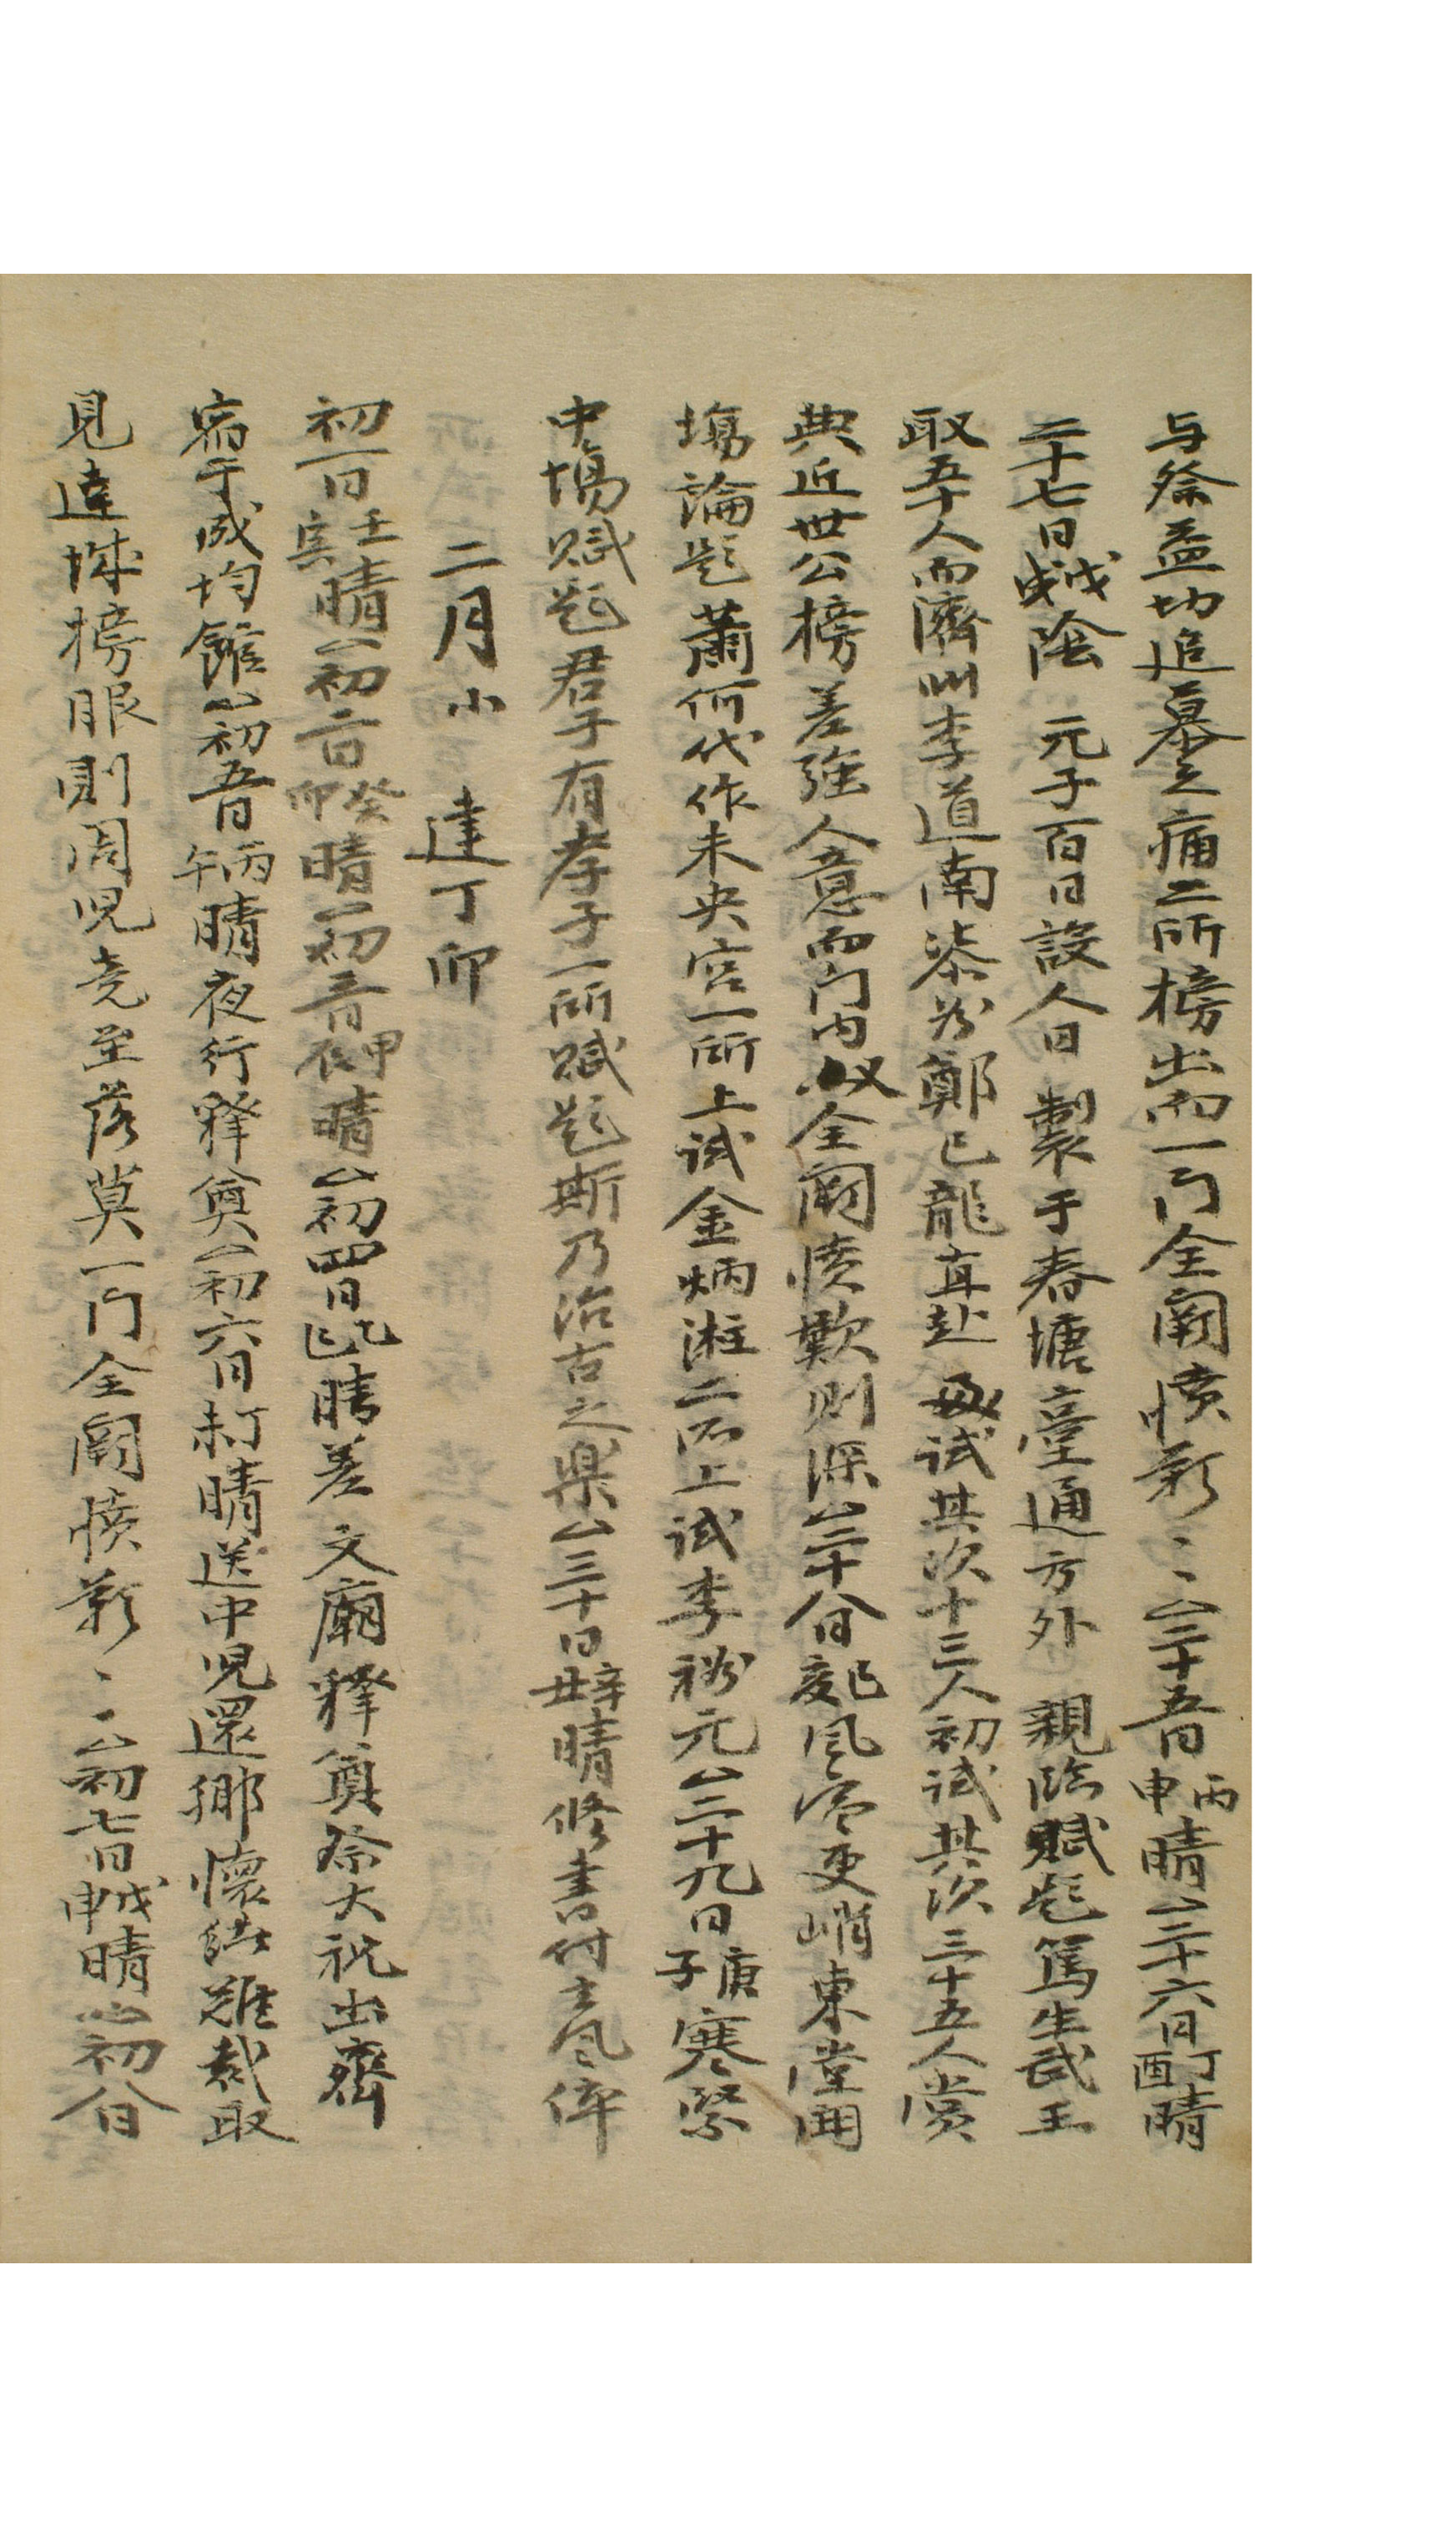 与祭益切追慕之痛二所榜出而一门全闕憤歎〻△二十五日丙申晴△二十六日丁酉晴
二十七日戊戌陰 元子百日設人日 製于春塘臺通方外 親臨賦題篤生武王
取五十人而濟州李道南柒於鄭已龍直赴 殿試其次十三人初試其次三十五人賞
典近世公榜差强人意而门内以全闕憤歎則深△二十八日己亥風寒更峭東堂開
塲論題蕭何代作未央宮一所上試金炳湴二所上試李裕元△二十九日庚子寒緊
中塲賦題君子有孝子一所賦題斯乃治古之樂△三十日辛丑晴修書付去風倅
二月小 建丁卯
初一日壬寅晴△初二日癸卯晴△初三日甲辰晴△初四日乙巳晴差 文廟釋奠祭大祝出齊
宿于成均館△初五日丙午晴夜行釋奠△初六日丁未晴送中児還鄉懷緖難裁取
見達城榜眼則周児克至落莫一门全闕憤歎〻△初七日戊申晴△初八日